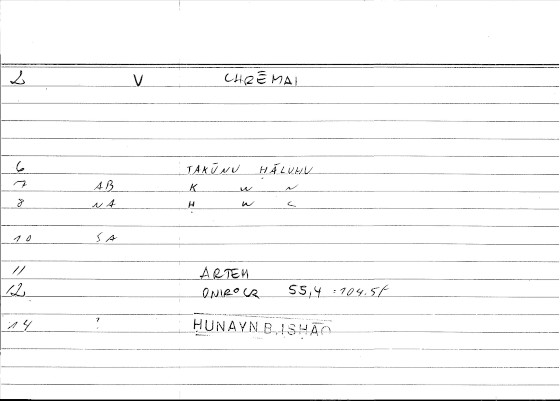 2 V CHRĒMAI
6 TAKŪNU ḤĀLUHU
7 AB K W N
8 NA Ḥ W L
10 SA
11 ARTEM
12 ONIROCR 55,4 :104.5f
14 ? ḤUNAYN B.ISḤĀQ